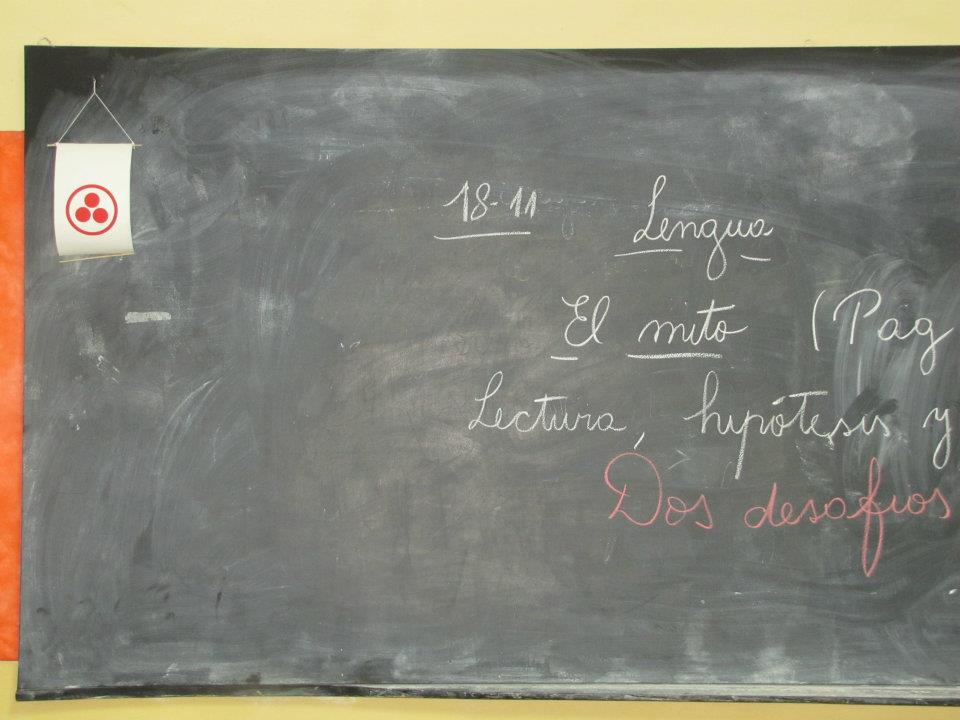 18-11 Lengua
El mito (Pág
Lectura, hipótesis y
Dos desafíos